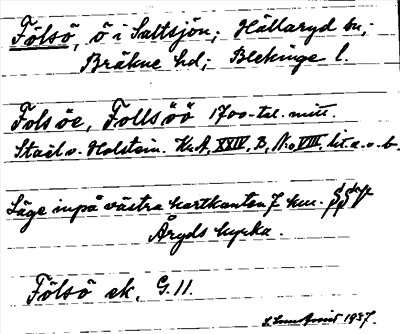 Fölsö, ö i Saltsjön; Hällaryd sn;
Bräkne hd; Blekinge l.
Folsöe, Follsöö 1700-tal. mitt.
Staël v. Holstein. Kr.A. XXIV, B, No VIII, lit. a. o. b.
Läge inpå västra kartkanten 7 km. SSV
Åryds kyrka.
Fölsö ek. G. 11.
1937.